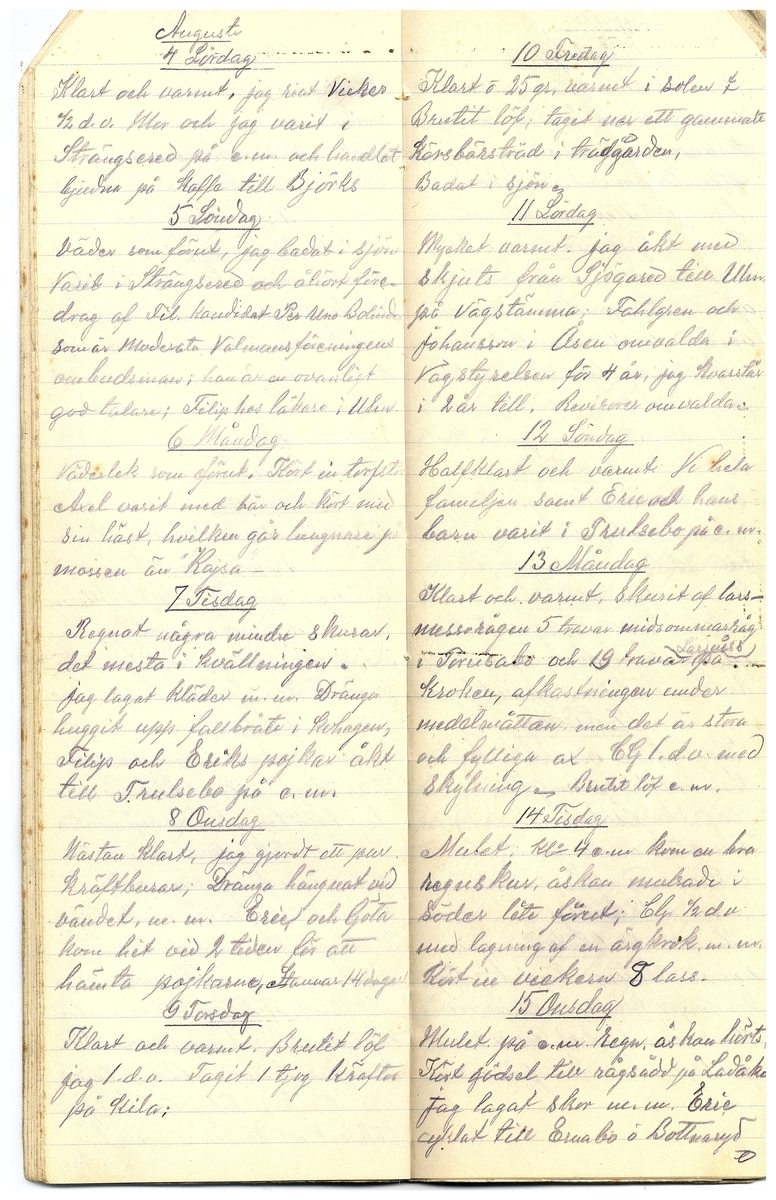 Augusti
4 Lördag
Klart och varmt, jag riat Vicker
1/2 d.v. Mor och jag varit i
Strängsered på e.m. och handlat
bjudna på Kaffe till Björks
5 Söndag
Väder som förut, jag badat i sjön
Varit i Strängsered och åhört före-
drag af Fil. Kandidat Per Uno
som är Moderata Valmansföreningens
ombudsman; han är en ovanligt
god talare; Filip hos läkare i Uhn.
6 Måndag
Väderlek som förut. Kört in torfströ
Axel varit med bär och kört med
sin häst, hvilken går lungnare på
mossen än "Kajsa"
7 Tisdag
Regnat några mindre skurar,
det mesta i kvällningen.
jag lagat kläder m.m. Dränga
huggit upp fallbråte i kohagen,
Filip och Eriks pojkar åkt
till Trulsebo på e.m.
8 Onsdag
Nästan klart, jag gjordt ett par
Kräftburar; Dränga hängnat vid
vändet, m.m. Eric och Göta
kom hit vid 2 tiden för att
hämta pojkarne, Stannar 14 dagar
9 Torsdag
Klart och varmt. Brutit löf
jag 1 d.v. Tagit 1 tjog Kräftor
på Kila;
10 Fredag
Klart o 25 gr. varmt i solen
Brutit löf; taget ner ett gammalt
Körsbärsträd i trädgården,
Badat i sjön.
11 Lördag
Mycket varmt. jag åkt med
skjuts från Sjögared till Uhn.
på Vägstämma; Fahlgren och
Johansson i Åsen omvalda i
Vägstyrelsen för 4 år, jag kvarstår
i 2 år till. Revisorer omvalda.
12 Söndag
Halfklart och varmt. Vi hela
familjen samt Eric och hans
barn varit i Trulsebo på e.m.
13 Måndag
Klart och varmt, skurit af lars-
messrågen 5 travar midsommarråg
i Torutabo och 19 travar Larsmäss på
Kroken, afkastningen under
medelmåttan men det är stora
och fylliga ax CG 1 d.v. med
Skylning. Brutit löf e.m.
14 Tisdag
Mulet, Kl. 4 e.m kom en bra
regnskur, åskan mulrade i
Söder lite förut; CG 1/2 d.v
med lagning af en årgkrok m.m.
Kört in vickern 8 lass.
15 Onsdag
Mulet på e.m. regn, åskan hörts,
Kört gödsel till rågsädd på Ladåker
jag lagat skor m.m. Eric
cyklat till Ernabo o Bottnaryd